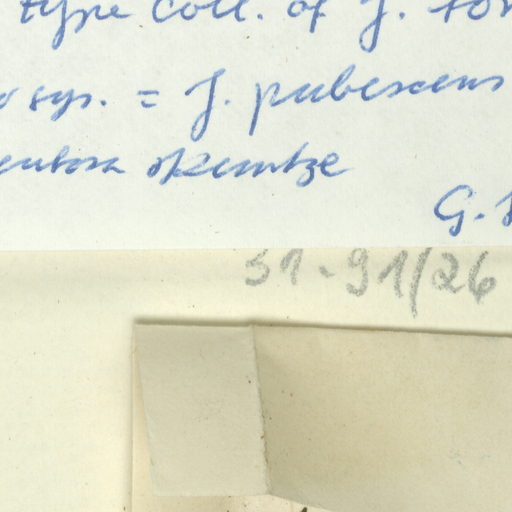 type coll. of J. tor
syn. = J. pubescens
OKuntze
G.
31-91/26